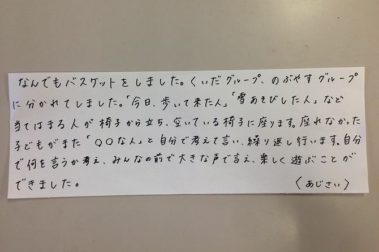 なんでもバスケットをしました。くいだグループ、のぶやすグループ
に分かれてしました。「今日、歩いて来た人」「雪あそびした人」など
当てはまる人が椅子から立ち、空いている椅子に座ります。座れなかった
子どもがまた「〇〇な人」と自分で考えて言い、繰り返し行います。自分
で何を言うか考え、みんなの前で大きな声で言え、楽しく遊ぶことが
できました。 （あじさい）